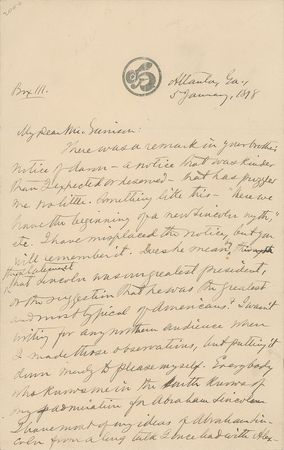 Box 111.
Atlanta, Ga.,
5 January, 1898
My dear Mr.
There was a remark in your brother's
notice of dawn — a notice that was kinder
than I expected or deserved — that has puzzled
me no little. Something like this — "Here we
have the beginning of a new Lincoln myth,"
etc. I have misplaced the notice, but you
will remember it. Does he mean
that Lincoln was our greatest president,
or the suggestion that he was the greatest
and most typical of Americans? I wasn't
writing for any northern audience when
I made those observations, and putting it
down merely to please myself. Everybody
who knows me in the South knows of
my admiration for Abraham Lincoln
I have most of my ideas of Abraham Lin-
coln from a long talk I once had with Alex-